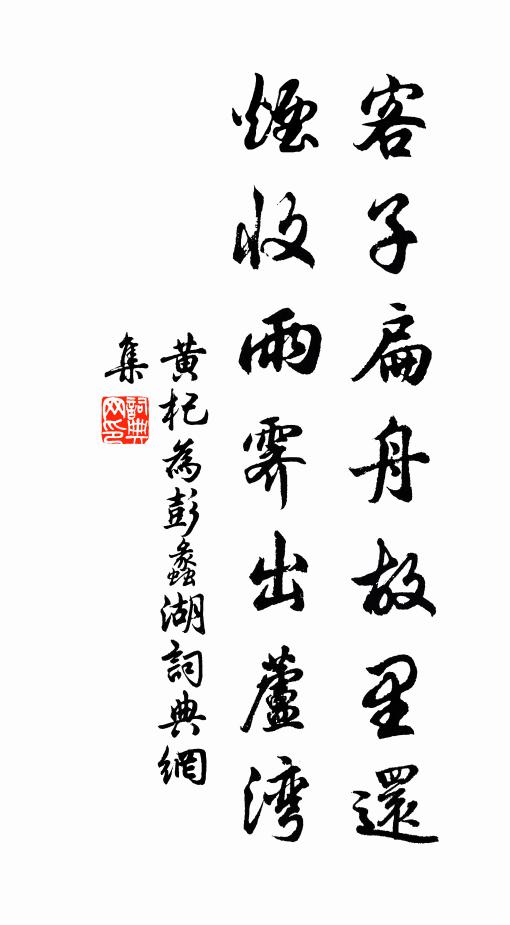 客子扁舟故里還
煙收雨霽出蘆灣
黄杞為彭蠡湖詞典網
集
詞典
网印